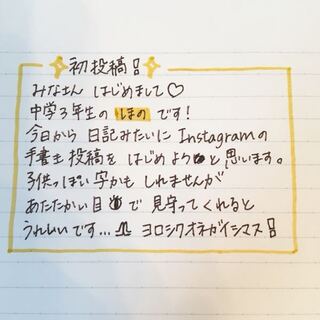 初投稿!
みなさん はじめまして♡
中学3年生の ほの です!
今日から 日記みたいに Instagramの
手書き投稿を はじめようと 思います。
子供っぽい字かも しれませんが
あたたかい目で 見守ってくれると
うれしいです... ヨロシクオネガイシマス!